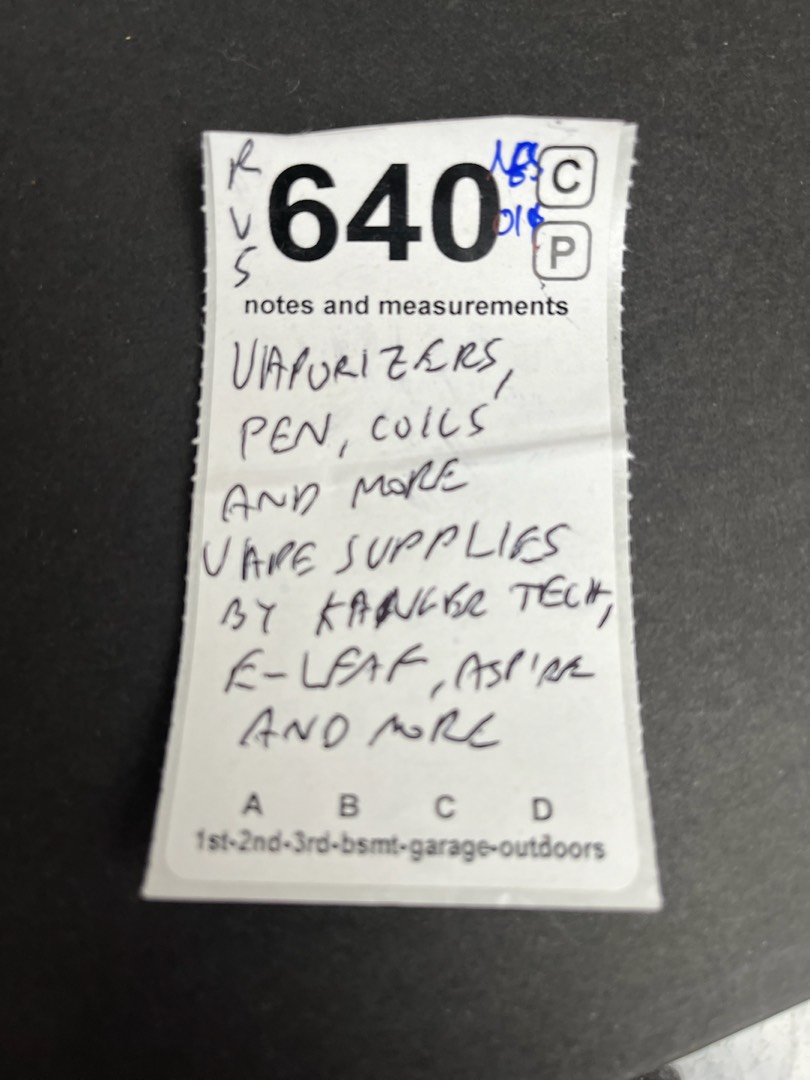 R
V
S
640
C
P
notes and measurements
VAPORIZERS,
PEN, COILS
AND MORE
VAPE SUPPLIES
BY KANGER TECH,
E-LEAF, ASPIRE
AND MORE
A B C D
1st-2nd-3rd-bsmt-garage-outdoors